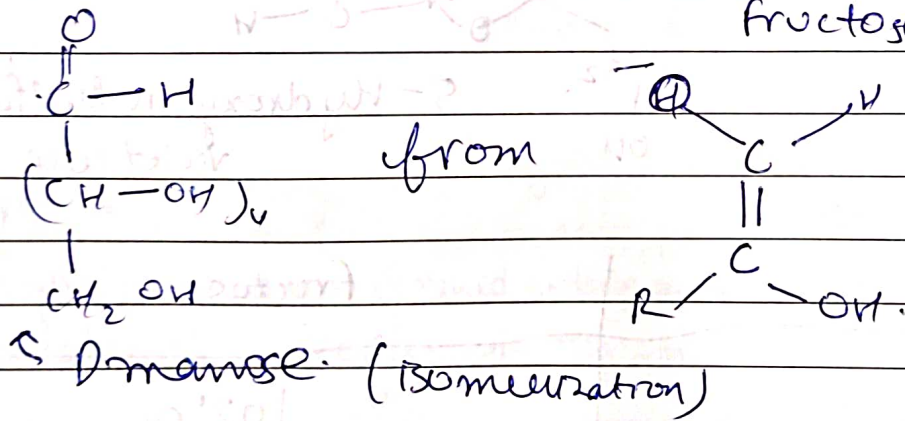 fructos
O
C — H
(CH — OH)₄
CH₂ OH
from
⁻O H
C
||
C
R OH.
Dmanose. (isomerization)